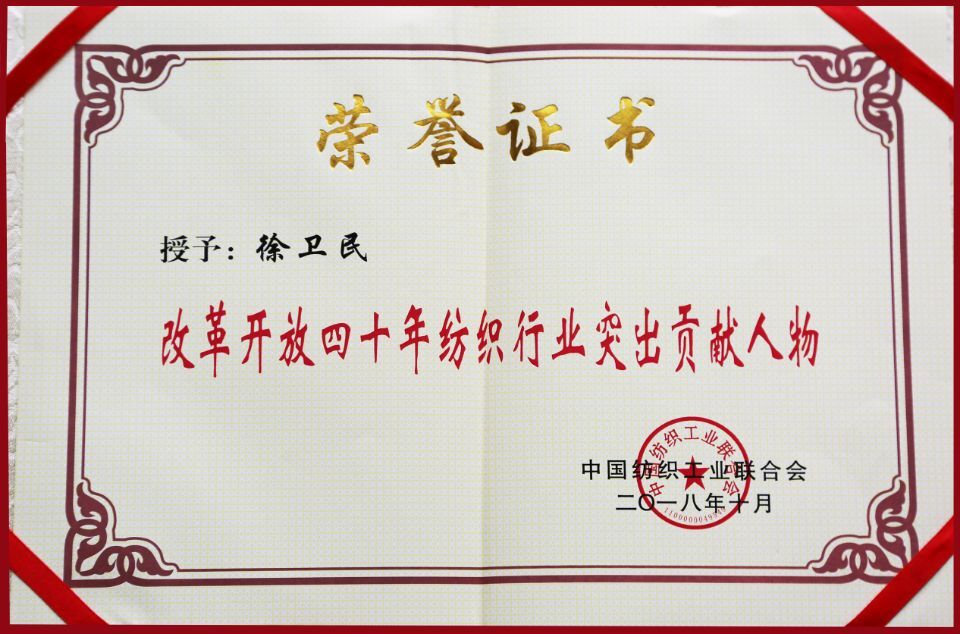 荣誉证书
授予：徐卫民
改革开放四十年纺织行业突出贡献人物
中国纺织工业联合会
二〇一八年十月
中国纺织工业联合会